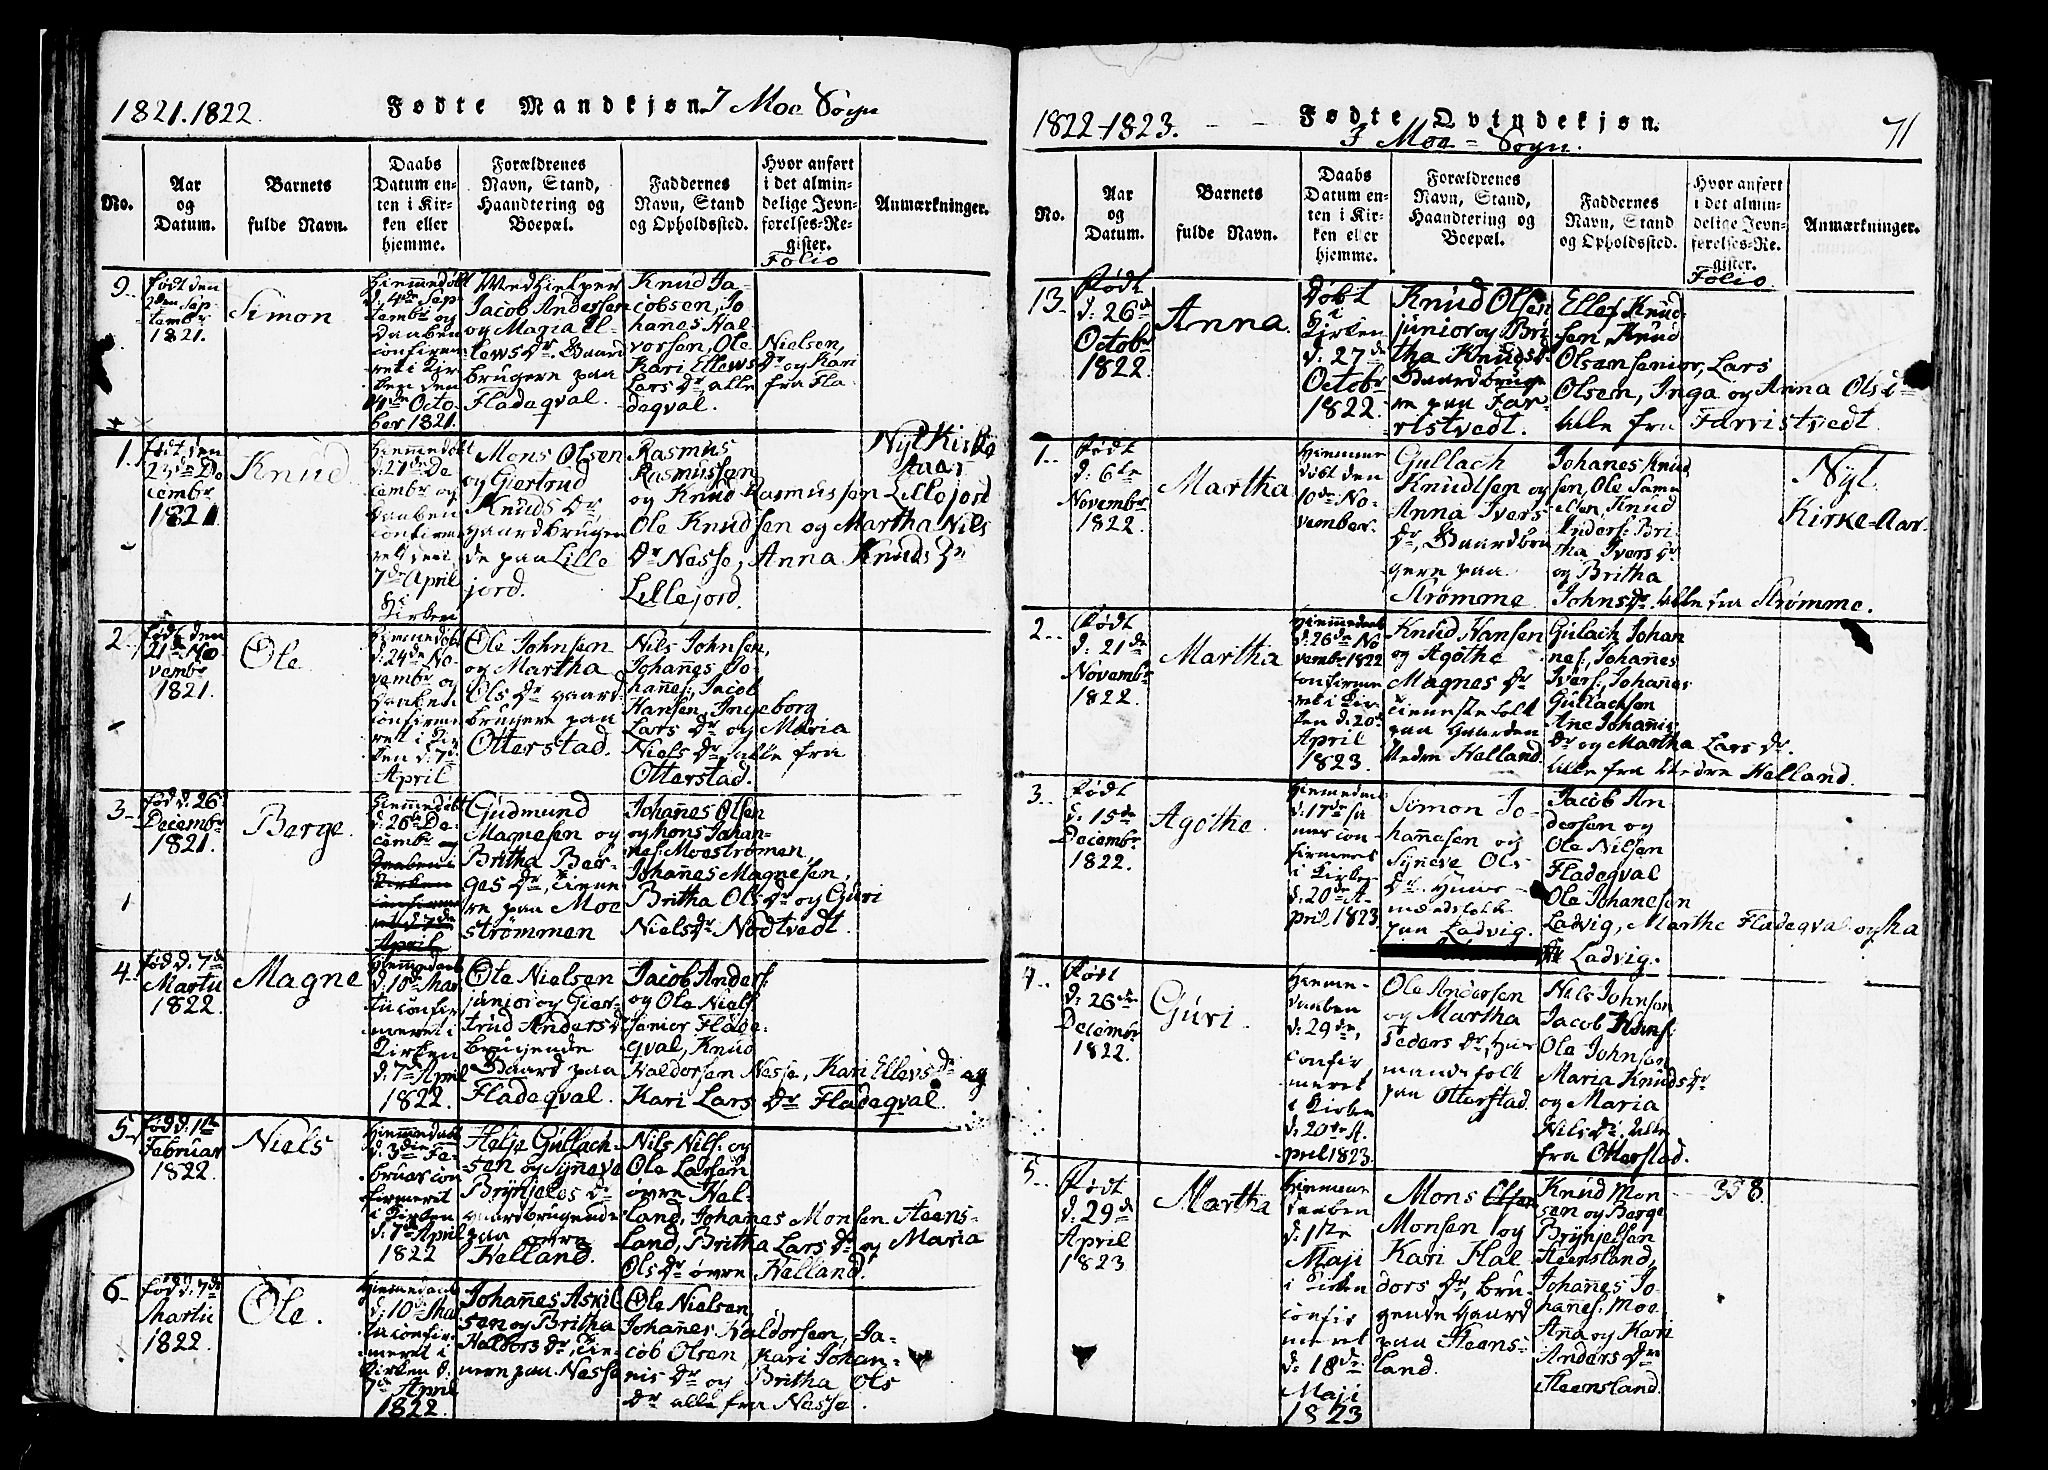 1821.1822. Fødte Mandkjøn I Moe Sogn
No.
Aar
og
Datum.
Barnets
fulde Navn.
Daabs
Datum en-
ten i Kir-
ken eller
hjemme.
Forældrenes
Navn, Stand,
Haandtering og
Boepæl.
Faddernes
Navn, Stand
og Opholdssted.
Hvor anført
i det almin-
delige Jevn-
førelses-Re-
gister.
Folio
Anmærkninger.
9.
født den
2den Sep-
tembr
1821.
Simon
Hiemmedøbt
d: 4de Sep-
tembr og
daaben
confirme-
ret i Kir-
ken den
Octo-
ber 1821.
Medhielper
Jacob Andersen
og Maria El-
lews Dr. Gaard
brugere paa
Fladeqval.
Knud Ja-
cobsen, Jo
hanes Hal-
vorsen, Ole Nielsen,
Kari Ellews Dr og Kari
Lars Dr, alle fra Fla
deqval.
1.
født den
23de De
cembr
1821
Knud
Hiemmedøbt
d: 27 De
cembr og
daaben
confirme
ret den
7de April
i Kirken
Mons Olsen
og Giertrud
Knuds Dr,
gaardbrugen
de paa Lille
jord.
Nyt Kirke
Aar
Rasmus
Rasmussen
og Knud Rasmussen Lillejord
Ole Knudsen og Martha Nils
Dr Nesse, Anna Knuds Dr
Lillejord.
2.
født den
21de No
vembr
1821.
Ole
Hiemmedøbt
d: 24de No-
vembr og
daaben
confirme
ret i Kir
ken d: 7de
April
Ole Johnsen
og Martha
Ols Dr gaard
brugere paa
Otterstad.
Nils Johnsen,
Johanes Jo-
hanes:, Jacob
Hansen, Ingeborg
Lars Dr og Maria
Niels Dr, alle fra
Otterstad.
3.
fød d: 26
Decembr
1821.
Berge
Hiemmedøbt
d: 26de De-
cembr og
daaben i
Kirken
confirme
ret d: 7de
April
Gudmund
Magnesen og
Britha Ber-
ges Dr, tiene
re paa Moe
strømmen
Johanes Olsen
og Mons Johan-
nes: Moestrømen,
Johanes Magnesen,
Britha Ols Dr og Guri
Niels Dr Nodtvedt.
4.
fød d: 7de
Martii
1822.
Magne
Hiemmedøbt
d: 10de Mar
tii confir
meret i
Kirken
d: 7de April
1822.
Ole Nielsen
junior og Gier-
trud Anders Dr
brugende
Gaard paa
Fladeqval.
Jacob Anders:
og Ole Niels:
senior Flade-
qval, Knud
Haldorsen Nesse, Kari Ellevs Dr og
Kari Lars Dr Fladeqval.
5.
fød d: 1te
Februar
1822.
Niels
Hiemmedøbt
d: 3die Fe-
bruar con
firmeret
i Kirken
d: 7de April
1822
Helje Gullach
sen og Syneve
Brynjels Dr
gaardbrugende
paa øvre
Helland.
Nils Nils: og
Ole Larsen
øvre Hel-
land, Johanes Monsen Steens-
land, Britha Lars Dr og Maria
Ols Dr øvre Helland.
6.
fød d: 7de
Martii
1822.
Ole.
Hiemmedøbt
d: 10de Mar
tii confir-
meret i
Kirken d:
7de April
1822.
Johanes Askil
sen og Britha
Haldors Dr, tie-
nere paa Nesse
Ole Nielsen
Johanes Haldorsen, Ja-
cob Olsen, Kari Johan-
nis Dr og Britha Ols
Dr alle fra Nesse.
1822-1823. Fødte Qvindekjøn. 71
I Moe-Sogn.
No.
Aar
og
Datum.
Barnets
fulde Navn.
Daabs
Datum en-
ten i Kir-
ken eller
hjemme.
Forældrenes
Navn, Stand,
Haandtering og
Boepæl.
Faddernes
Navn, Stand
og Opholdssted.
Hvor anført
i det almin-
delige Jevn-
førelses-Re-
gister.
Folio
Anmærkninger.
13.
Født
d: 26de
Octobr
1822.
Anna.
Døbt
i
Kirken
d: 27de
Octobr
1822.
Knud Olsen
junior og Bri
tha Knuds Dr
Gaardbruge
re paa Far-
istvedt.
Ellef Knud-
sen, Knud
Olsen senior, Lars
Olsen, Inga og Anna Ols Dr
alle fra Farristvedt.
1.
Født
d: 6te
Novembr
1822.
Martha
Hiemme
døbt den
10de No-
vember.
Gullach
Knudsen og
Anna Ivers
Dr, Gaardbru
gere paa
Strømme
Johanes Knud
sen, Ole Samu
elsen, Knud
Anders: Bri-
tha Ivers Dr
og Britha
Johns Dr alle fra Strømme.
Nyt
Kirke-Aar
2.
Født
d: 21de
Novembr
1822.
Martha
Hiemmedøbt
d: 26de No
vembr 1822
confirme
ret i Kir
ken d: 20de
April
1823.
Knud Hansen
og Agothe
Magnes Dr
tienestefolk
paa gaarden
Nedre Helland.
Gulach Johan
nes:, Johanes
Ivers:, Johanes
Gullachsen
Ane Johanis
Dr og Martha Lars Dr.
alle fra Nedre Helland.
3.
Født
d: 15de
Decembr
1822.
Agothe.
Hiemmedøbt
d: 17de sa
me con
firmeret
i Kirken
d: 20de A-
pril, 1823
Simon Jo-
hannesen og
Syneve Ols
Dr. Huus-
mandsfolk
paa Ladvig.
Jacob An
dersen og
Ole Nilsen
Fladeqval
Ole Johanesen
Ladvig, Marthe Fladeqval og Ka
Ladvig.
4.
Født
d: 26de
Decembr
1822.
Guri.
Hieme-
daaben
d: 29de,
confir
meret
i Kirken
d: 20de A-
pril, 1823.
Ole Andersen
og Martha
Peders Dr, Huus
mandsfolk
paa Otterstad.
Nils Johnsen
Jacob Hans:
Ole Johnsen
Maria Knuds Dr
og Maria
Nils Dr. alle
fra Otterstad.
5.
Født
d: 29de
April
1823
Martha
Hiemme
daaben
d: 1te
Maji
i Kirken
confir
meret
d: 18de
Maji
1823
Mons Olsen
Monsen og
Kari Hal
dors Dr, bru
gende Gaard
paa Steens-
land.
Knud Mon
sen og Berge
Brynjelsen
Steensland,
Johanes Jo-
hanes: Moe
Ana og Kari
Anders Dre
Steensland.
338.